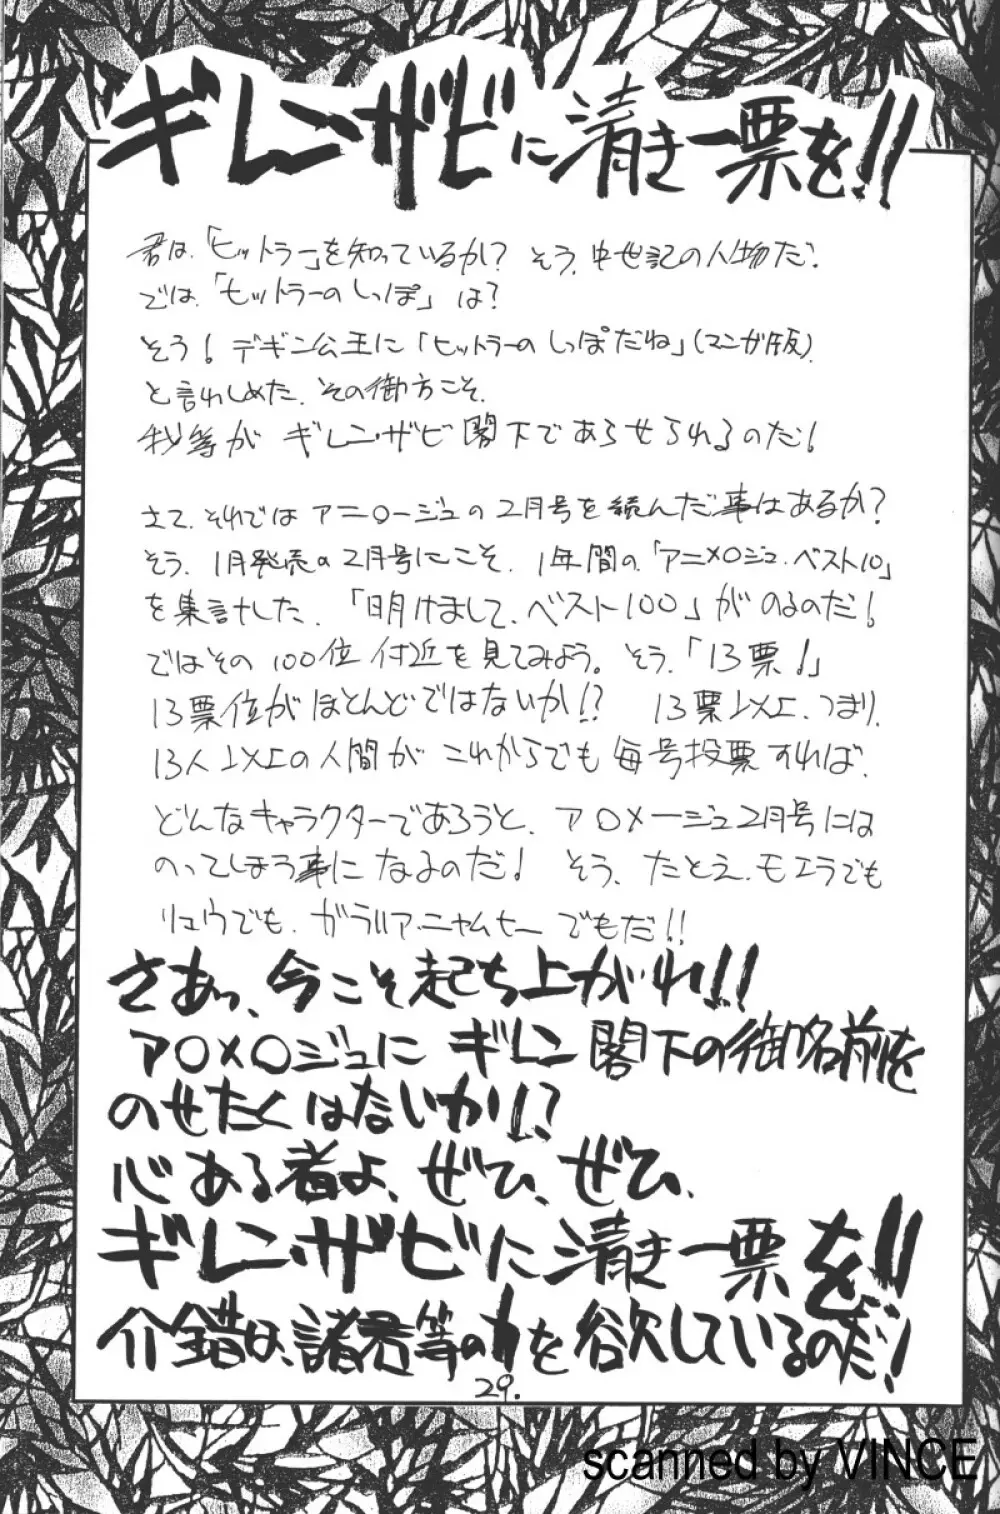 ギレン・ザビに清き一票を!!
君は、「ヒットラー」を知っているか? そう、中世記の人物だ.
では、「ヒットラーのしっぽ」は?
そう! デギン公王に「ヒットラーのしっぽだね」(マンガ版).
と言わしめた、その御方こそ、
我等が ギレン・ザビ閣下であらせられるのだ!
さて、それでは アニ〇ージュの2月号を読んだ事はあるか?
そう、1月発売の2月号にこそ、1年間の「アニメ〇ジュ、ベスト10」
を集計した、「明けまして、ベスト100」がのるのだ!
ではその100位付近を見てみよう。そう、「13票!」
13票位がほとんどではないか!? 13票以上、つまり、
13人以上の人間が これからでも毎号投票すれば、
どんなキャラクターであろうと、ア〇メージュ2月号には
のってしまう事になるのだ! そう、たとえ、モエラでも
リュウでも、ガラリア・ニャムヒーでもだ!!
さあっ、今こそ起ち上がれ!!
ア〇メ〇ジュに ギレン閣下の御名前を
のせたくはないか!?
心ある者よ、ぜひ、ぜひ、
ギレン・ザビに清き一票を!!
介錯は、諸君等の力を欲しているのだ!
29.
scanned by VINCE